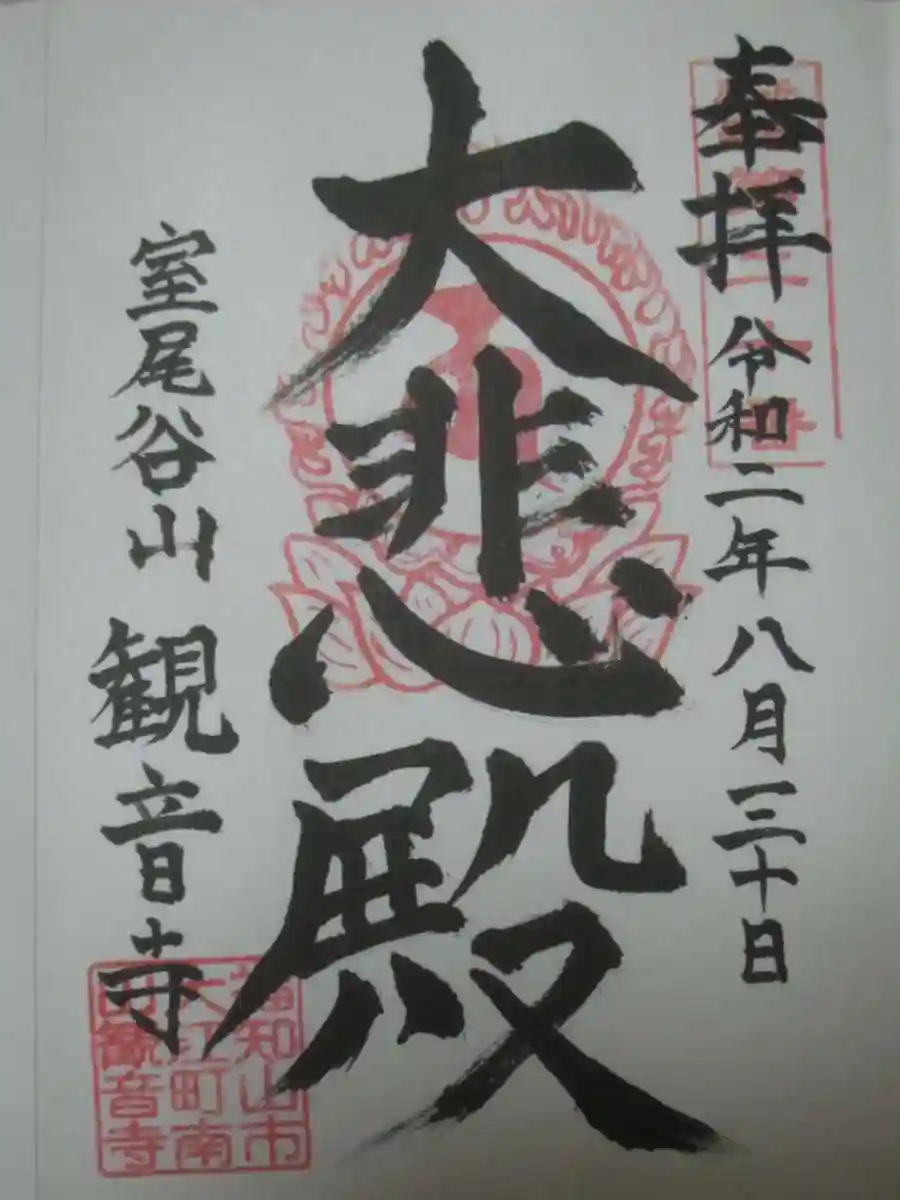 奉拝 令和二年八月三十日
大悲殿
室尾谷山 観音寺
福知山市
大江町南
山観音寺